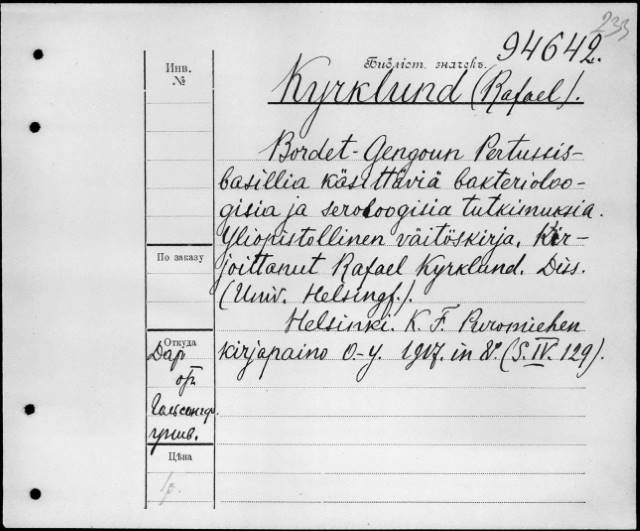 233
94642.
Инв.
№
Библіот. значекъ.
Kyrklund (Rafael).
Bordet-Gengoun Pertussis-
basillia käsittäviä bakterioloo-
gisia ja seroloogisia tutkimuksia.
Yliopistollinen väitöskirja. Kir-
joittanut Rafael Kyrklund. Diss.
(Univ. Helsingf.).
Helsinki. K. F. Puromiehen
kirjapaino O-y. 1917. in 8°. (S. IV. 129).
По заказу
Откуда
Даръ
отъ
Гельсингф.
унив.
Цѣна